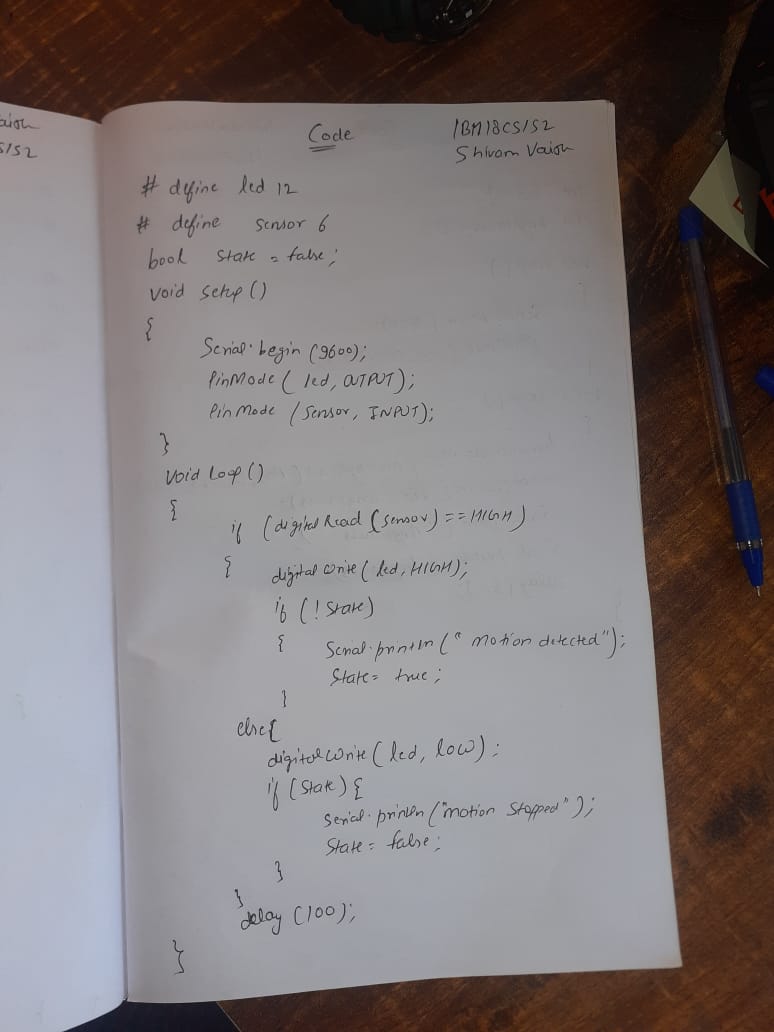 aish
S152
Code
1BM18CS152
Shivam Vaish
# define led 12
# define sensor 6
bool state = false;
void setup()
{
Serial.begin (9600);
PinMode ( led, OUTPUT);
PinMode (sensor, INPUT);
}
void loop ()
{
if (digital Read (sensor) == HIGH)
{ digital write ( led, HIGH);
if (! state)
{ Serial.println (" motion detected");
State = true ;
}
else{
digitalwrite ( led, low) ;
if (state) {
Serial.println ("motion stopped" );
State = false;
}
}
delay (100);
}